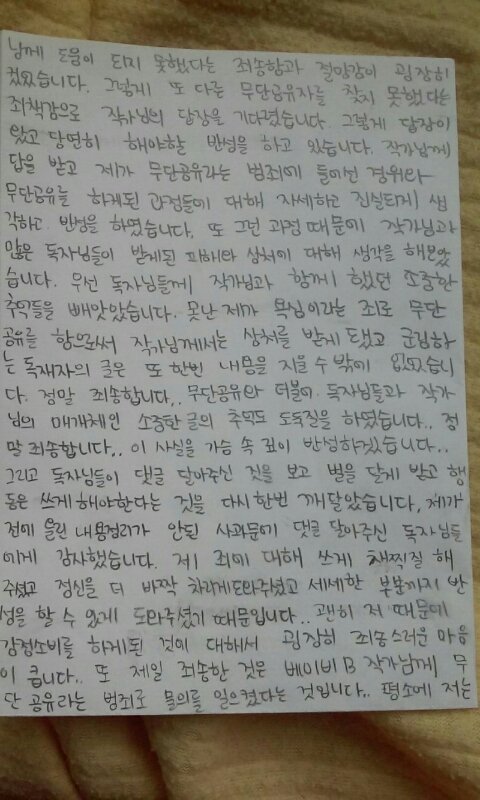 님께 도움이 되지 못했다는 죄송함과 절망감이 굉장히
컸었습니다. 그렇게 또 다른 무단공유자를 찾지 못했다는
죄책감으로 작가님의 답장을 기다렸습니다. 그렇게 답장이
왔고 당연히 해야할 반성을 하고 있습니다. 작가님께
답을 받고 제가 무단공유라는 범죄에 들어선 경위와
무단공유를 하게된 과정들에 대해 자세하고 진실되게 생
각하고 반성을 하였습니다. 또 그런 과정 때문에 작가님과
많은 독자님들이 받게된 피해와 상처에 대해 생각을 해보았
습니다. 우선 독자님들께 작가님과 함께 했던 소중한
추억들을 빼앗았습니다. 못난 제가 욕심이라는 죄로 무단
공유를 함으로써 작가님께서는 상처를 받게 됐고 군림하
는 독재자의 글은 또 한번 내용을 지울 수 밖에 없었습니
다. 정말 죄송합니다.. 무단공유와 더불어 독자님들과 작가
님의 매개체인 소중한 글의 추억도 도둑질을 하였습니다.. 정
말 죄송합니다.. 이 사실을 가슴 속 깊이 반성하겠습니다..
그리고 독자님들이 댓글 달아주신 것을 보고 벌을 달게 받고 행
동은 쓰게 해야한다는 것을 다시 한번 깨달았습니다. 제가
전에 올린 내용정리가 안된 사과문에 댓글 달아주신 독자님들
에게 감사했습니다. 제 죄에 대해 쓰게 채찍질 해
주셨고 정신을 더 바짝 차리게 도와주셨고 세세한 부분까지 반
성을 할 수 있게 도와주셨기 때문입니다.. 괜히 저 때문에
감정소비를 하게된 것에 대해서 굉장히 죄송스러운 마음
이 큽니다.. 또 제일 죄송한 것은 베이비B 작가님께 무
단 공유라는 범죄로 물의를 일으켰다는 것입니다.. 평소에 저는